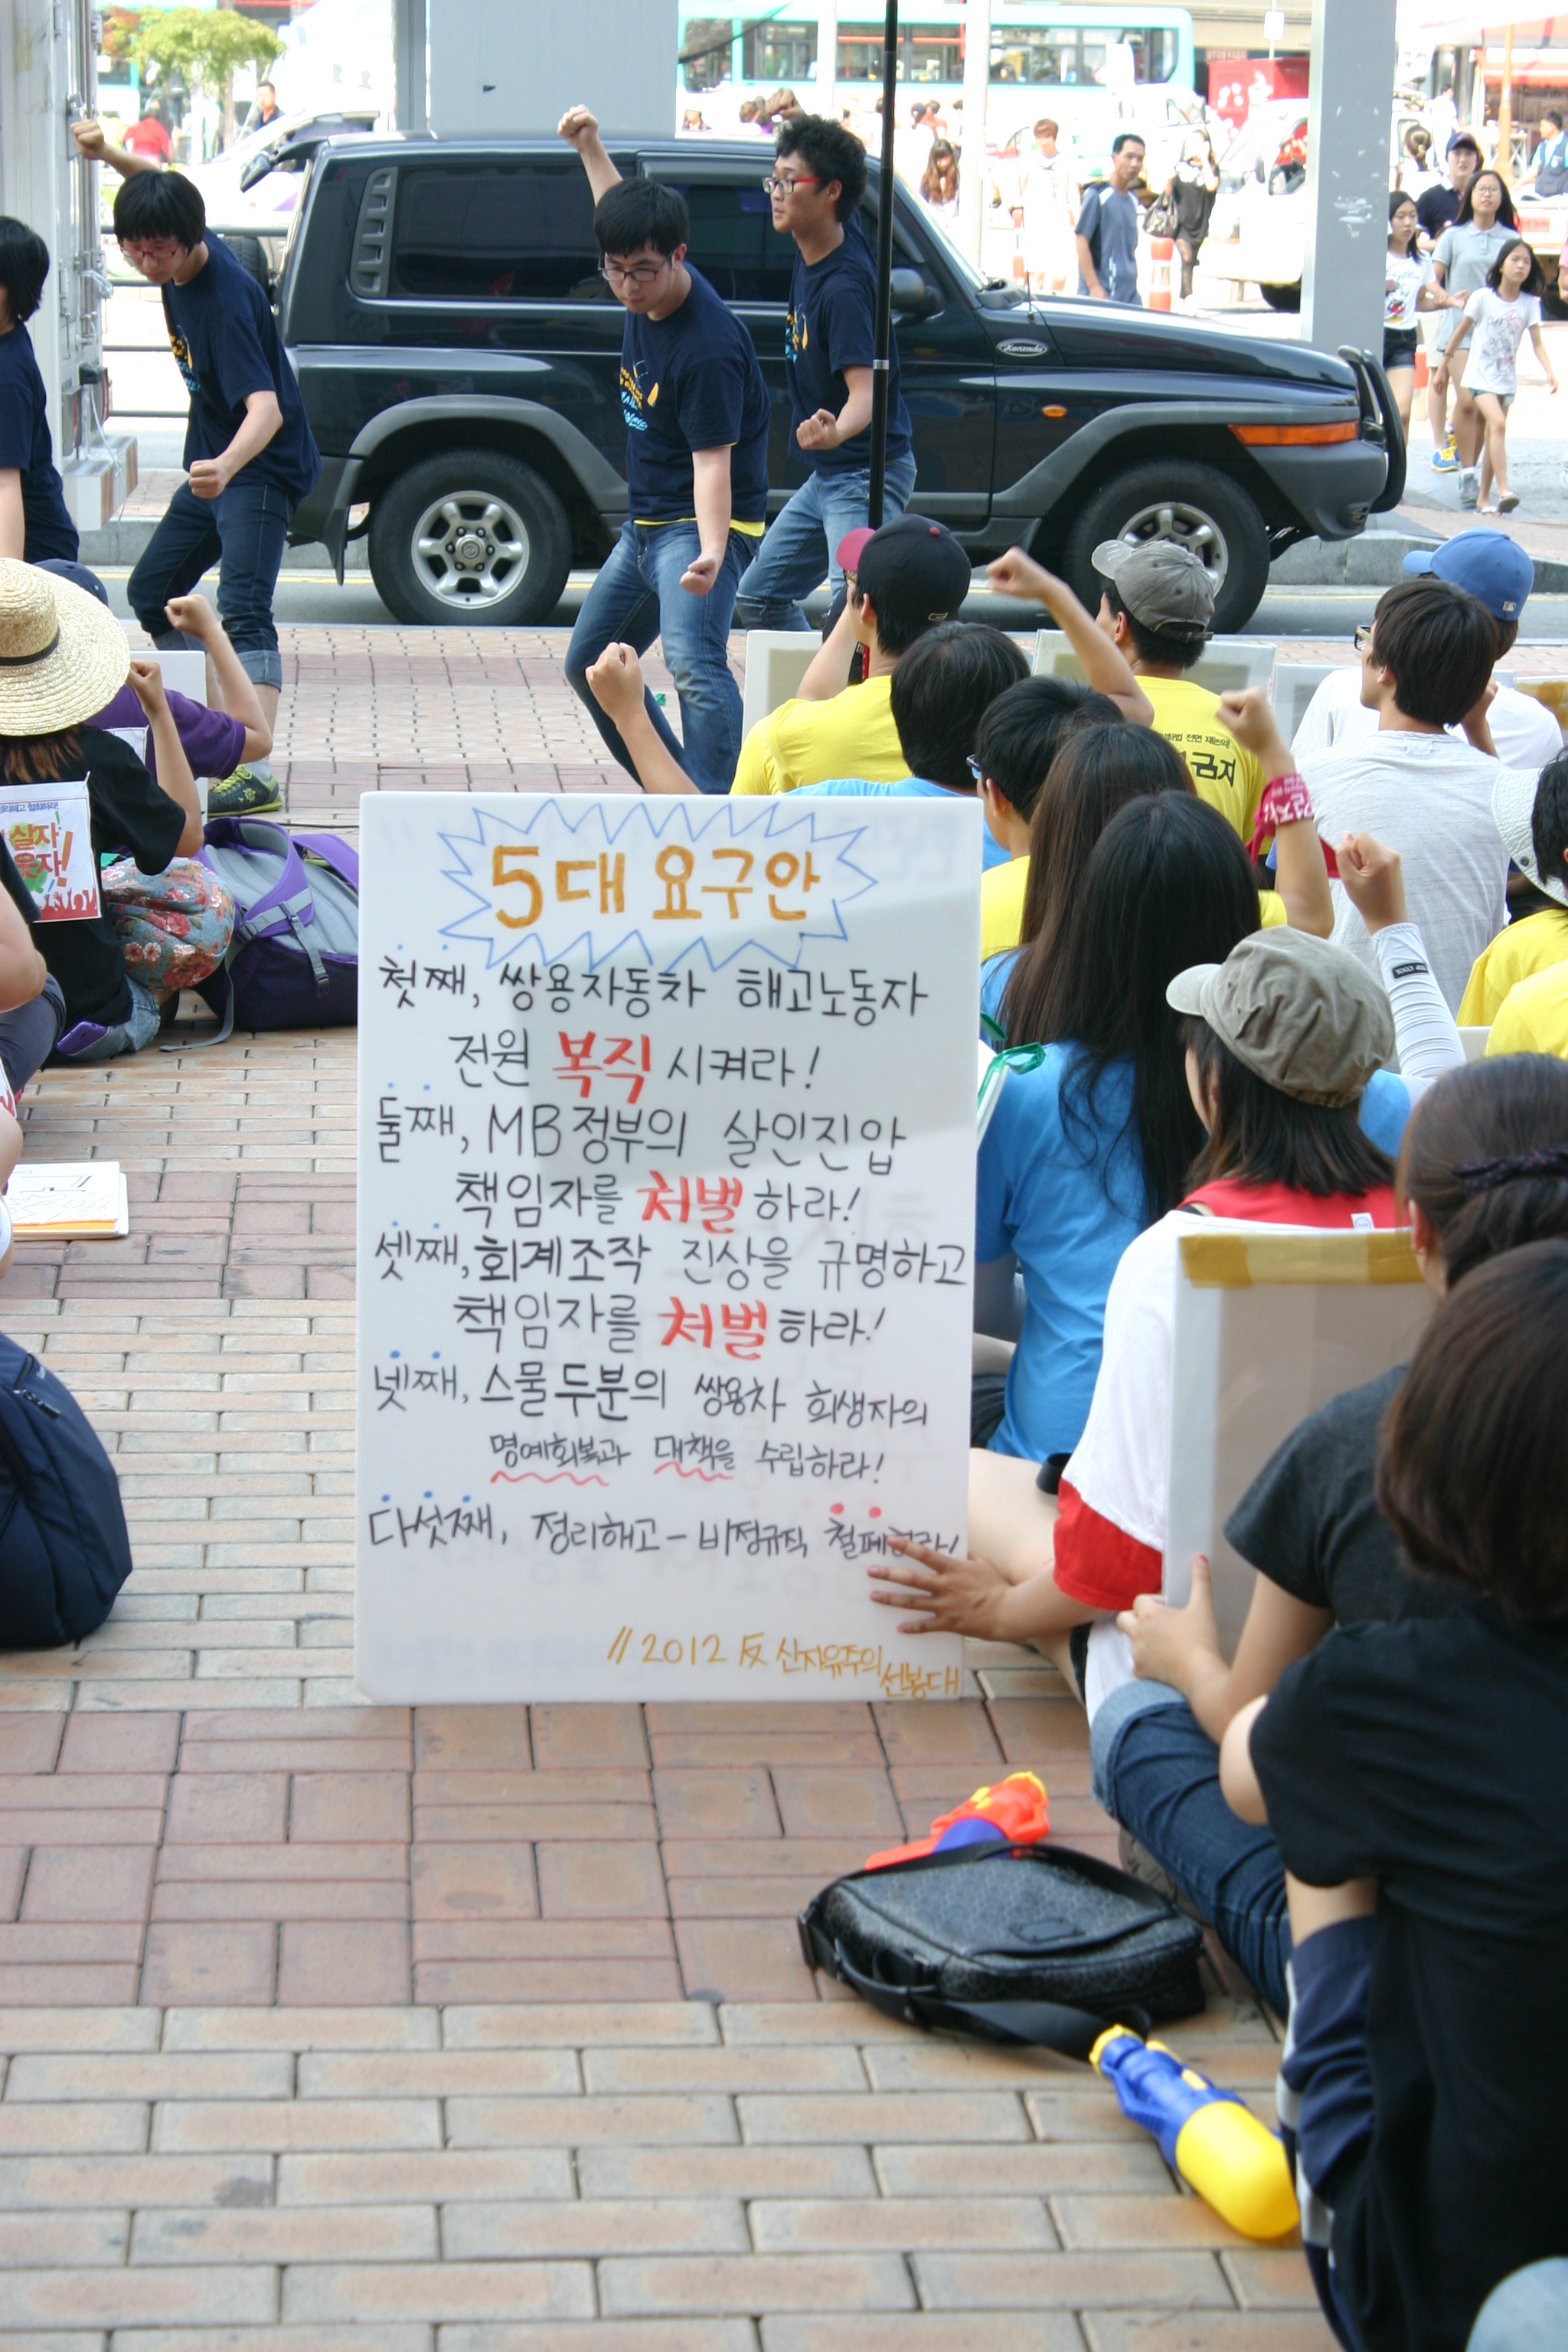 5대 요구안
첫째, 쌍용자동차 해고노동자
전원 복직 시켜라!
둘째, MB정부의 살인진압
책임자를 처벌하라!
셋째, 회계조작 진상을 규명하고
책임자를 처벌하라!
넷째, 스물두분의 쌍용차 희생자의
명예회복과 대책을 수립하라!
다섯째, 정리해고-비정규직 철폐하라!
//2012 反 신자유주의
선봉대
Korando
전면 재논의!
금지
살자
웃자!